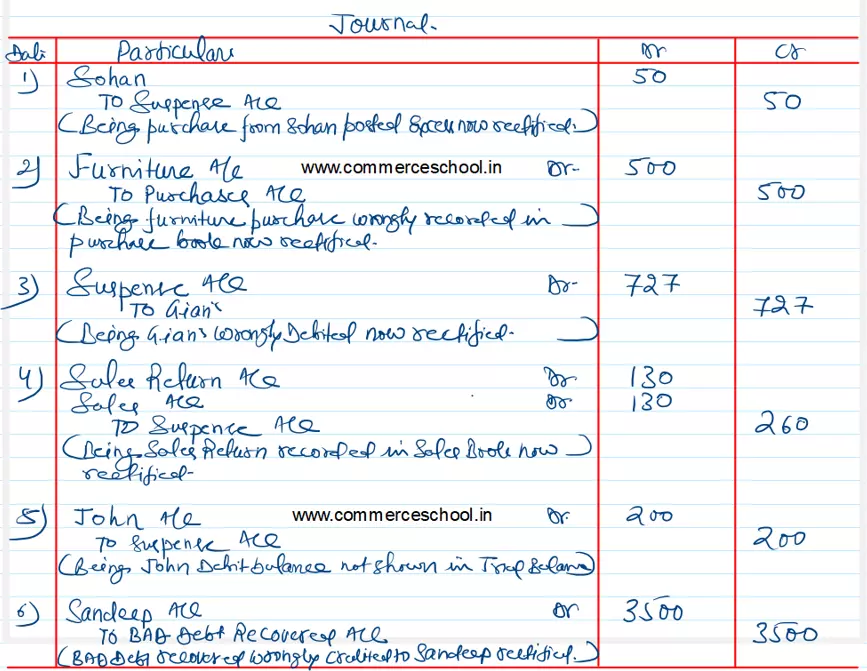 Journal.
Date Particulars Dr Cr
1) Sohan 50
To Suspense A/c 50
(Being purchase from Sohan posted Excess now rectified.)
2) Furniture A/c www.commerceschool.in Dr- 500
To Purchases A/c 500
(Being furniture purchase wrongly recorded in
purchase book now rectified.
3) Suspense A/c Dr- 727
To Gian's 727
(Being Gian's wrongly Debited now rectified.)
4) Sales Return A/c Dr 130
Sales A/c Dr 130
To Suspense A/c 260
(Being Sales Return recorded in Sales Book now)
rectified-
5) John A/c www.commerceschool.in Dr. 200
To Suspense A/c 200
(Being John Debit balance not shown in Trial Balance)
6) Sandeep A/c Dr 3500
To BAD Debt Recovered A/c 3500
(BAD Debt recovered wrongly credited to Sandeep rectified.)